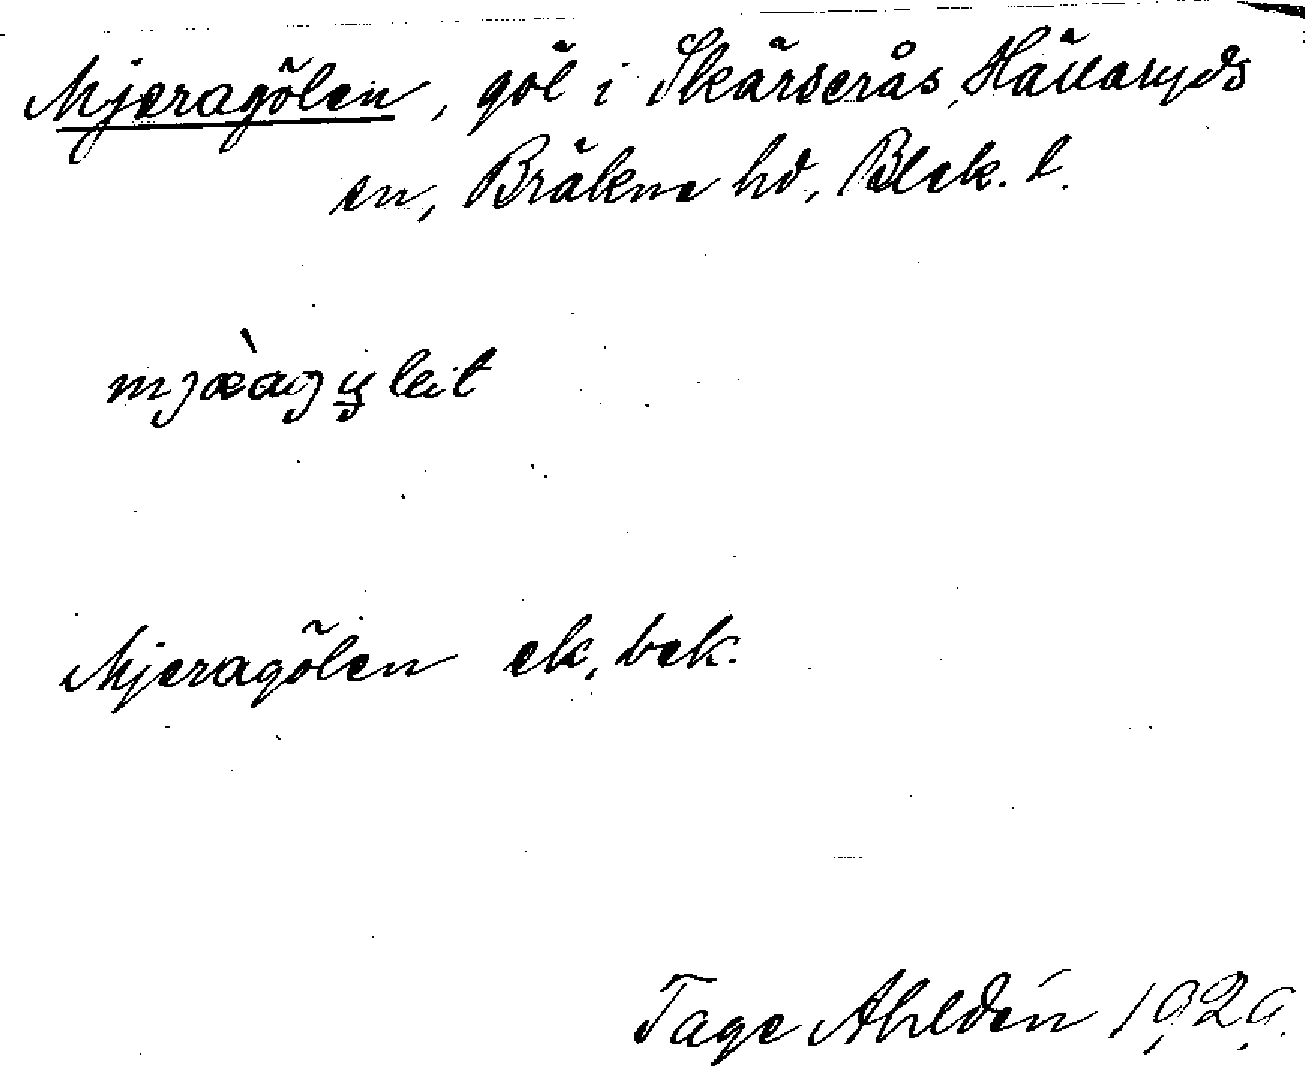 Mjæragölen, göl i Skärserås, Hällaryds
sn, Bräkne hd, Blek. l.
Mjæragölen ek. bek.
Tage Ahldén 1929.